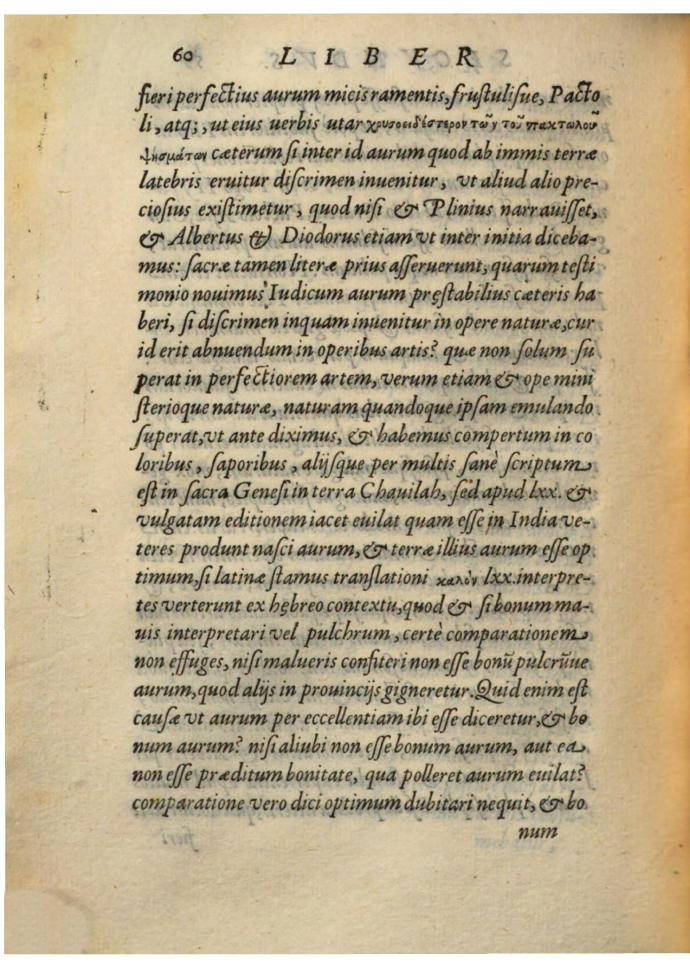 60 LIBER
fieri perfectius aurum micis ramentis, frustulisue, Pacto
li, atq;, ut eius uerbis utar χρυσοειδέστερον τῶν τοῦ πακτωλοῦ
ψησμάτων cæterum si inter id aurum quod ab immis terræ
latebris eruitur discrimen inuenitur, vt aliud alio pre-
ciosius existimetur, quod nisi & Plinius narrauisset,
& Albertus & Diodorus etiam vt inter initia diceba-
mus: sacræ tamen literæ prius asseruerunt, quarum testi
monio nouimus Iudicum aurum pręstabilius cæteris ha
beri, si discrimen inquam inuenitur in opere naturæ, cur
id erit abnuendum in operibus artis? quæ non solum su
perat in perfectiorem artem, verum etiam & ope mini
sterioque naturæ, naturam quandoque ipsam emulando
superat, vt ante diximus, & habemus compertum in co
loribus, saporibus, alijsque per multis sanè scriptum
est in sacra Genesi in terra Chauilah, sed apud lxx. &
vulgatam editionem iacet euilat quam esse in India ve-
teres produnt nasci aurum, & terræ illius aurum esse op
timum, si latinæ stamus translationi καλὸν lxx. interpre-
tes verterunt ex hębreo contextu, quod & si bonum ma-
uis interpretari vel pulchrum, certè comparationem
non effuges, nisi malueris confiteri non esse bonū pulcrūue
aurum, quod alijs in prouincijs gigneretur. Quid enim est
causæ vt aurum per eccellentiam ibi esse diceretur, & bo
num aurum? nisi aliubi non esse bonum aurum, aut ea
non esse præditum bonitate, qua polleret aurum euilat?
comparatione vero dici optimum dubitari nequit, & bo
num